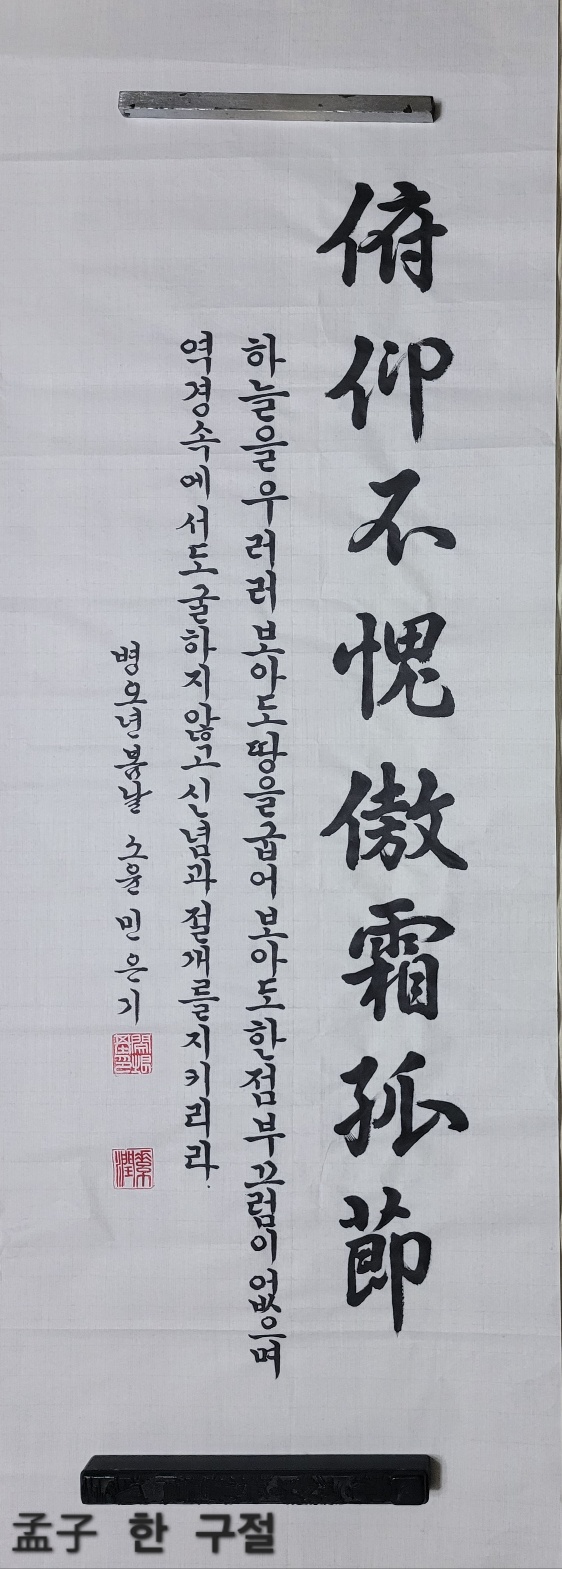 俯仰不愧傲霜孤節
하늘을 우러러 보아도 땅을 굽어 보아도 한점 부끄럼이 없으며
역경속에서도 굴하지 않고 신념과 절개를 지키리라.
병오년 봄날 소윤 민은기
素潤
孟子 한 구절